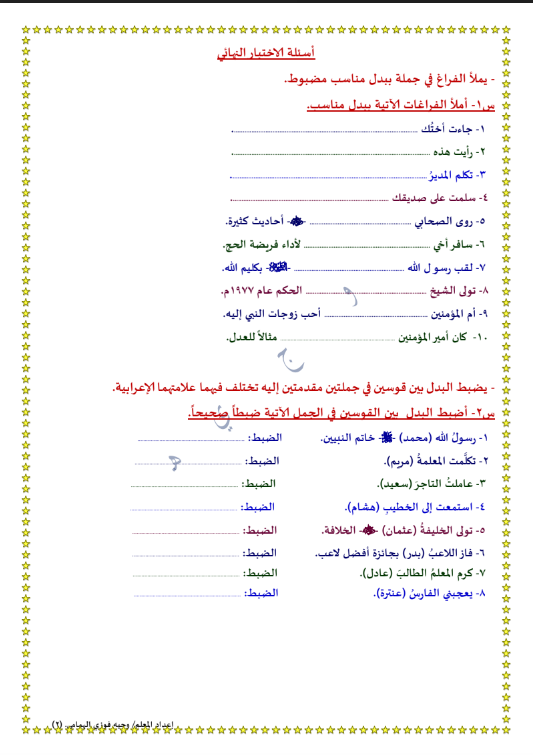 أسئلة الاختبار النهائي
- يملأ الفراغ في جملة ببدل مناسب مضبوط.
س١- أملأ الفراغات الآتية ببدل مناسب.
١- جاءت أختُك ..........
٢- رأيت هذه ..........
٣- تكلم المديرُ ..........
٤- سلمت على صديقك ..........
٥- روى الصحابي .......... - - أحاديث كثيرة.
٦- سافر أخي .......... لأداء فريضة الحج.
٧- لقب رسول الله .......... - - بكليم الله.
٨- تولى الشيخ .......... الحكم عام ١٩٧٧م.
٩- أم المؤمنين .......... أحب زوجات النبي إليه.
١٠- كان أمير المؤمنين .......... مثالاً للعدل.
- يضبط البدل بين قوسين في جملتين مقدمتين إليه تختلف فيهما علامتهما الإعرابية.
س٢- أضبط البدل بين القوسين في الجمل الآتية ضبطاً صحيحاً.
١- رسولُ الله (محمد) -ﷺ- خاتم النبيين. الضبط: ..........
٢- تكلَّمت المعلمةُ (مريم). الضبط: ..........
٣- عاملتُ التاجرَ (سعيد). الضبط: ..........
٤- استمعت إلى الخطيبِ (هشام). الضبط: ..........
٥- تولى الخليفةُ (عثمان) - - الخلافة. الضبط: ..........
٦- فاز اللاعبُ (بدر) بجائزة أفضل لاعب. الضبط: ..........
٧- كرم المعلمُ الطالبَ (عادل). الضبط: ..........
٨- يعجبني الفارسُ (عنترة). الضبط: ..........
إعداد المعلم/ وجيه فوزي الهمامي. (٢)